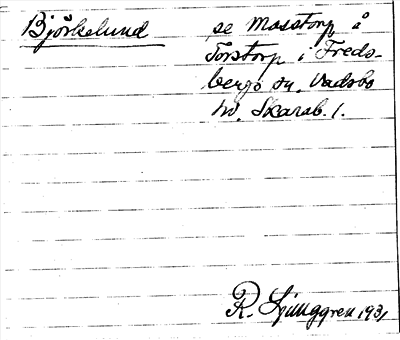 Björkelund se Mosstorp å
Torstorp i Freds-
bergs sn. Vadsbo
hd. Skarab. l.
R. Ljunggren 1931